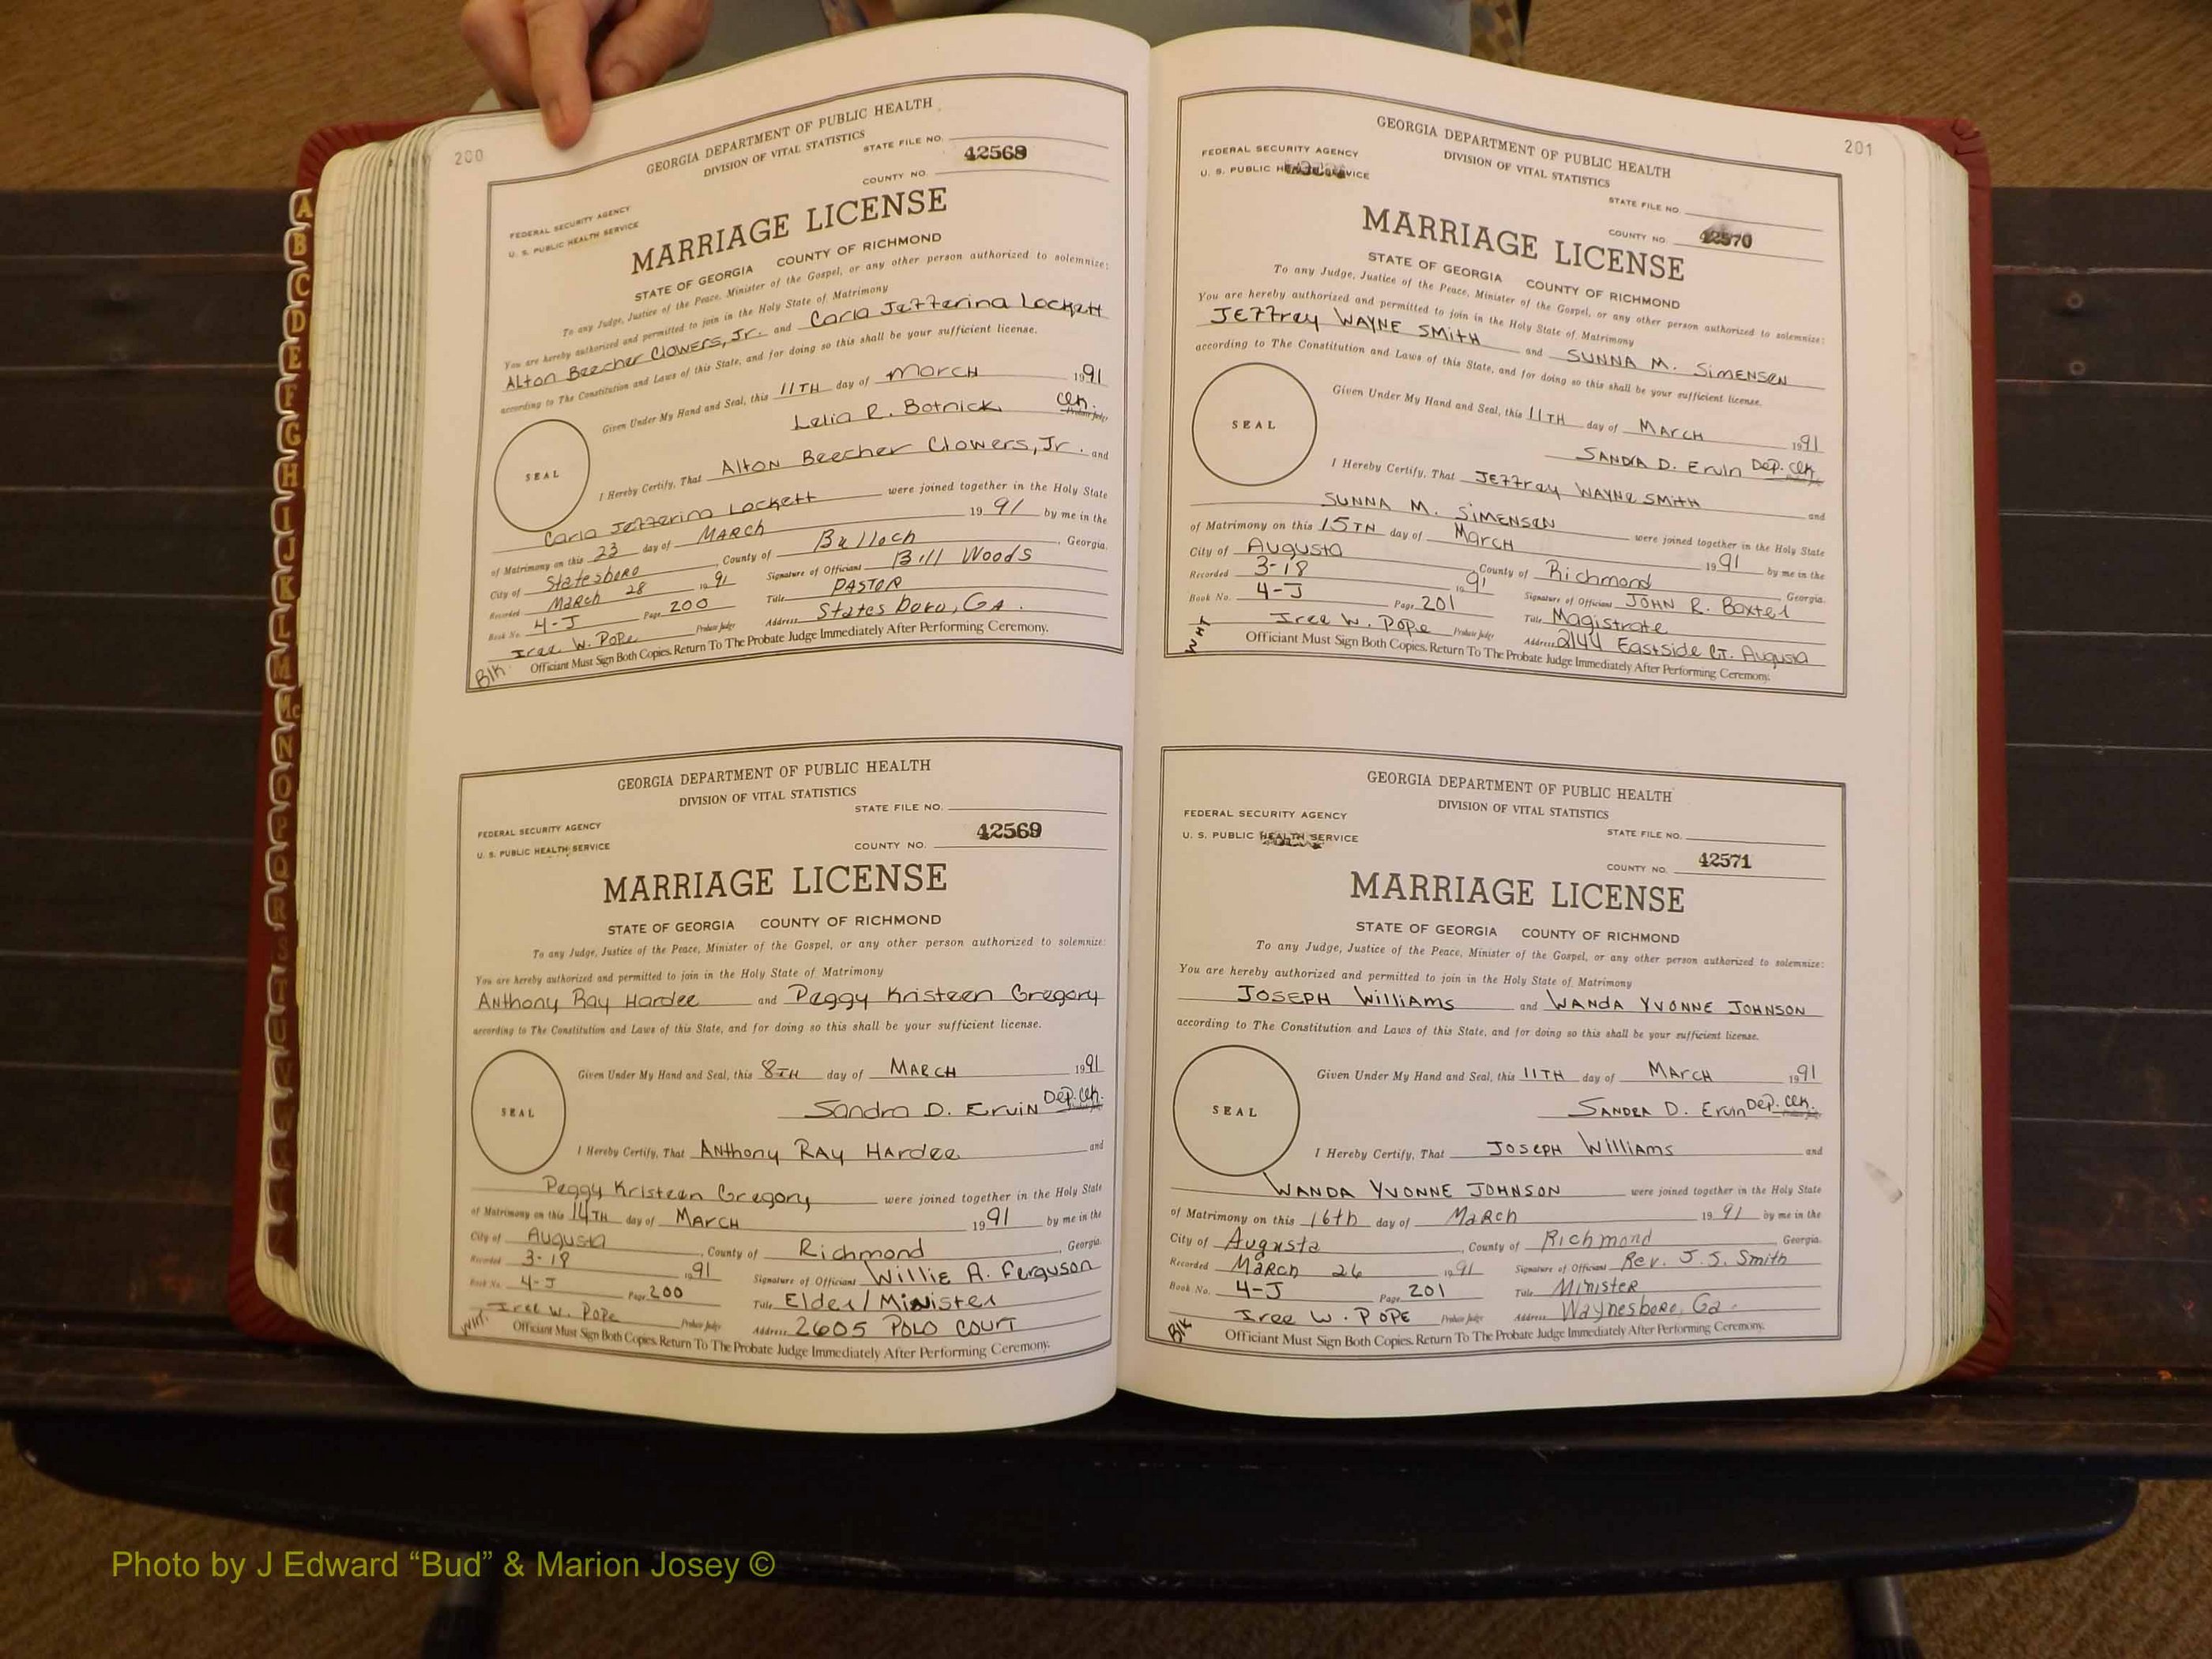 200
GEORGIA DEPARTMENT OF PUBLIC HEALTH
DIVISION OF VITAL STATISTICS
STATE FILE NO.
42568
COUNTY NO.
FEDERAL SECURITY AGENCY
U. S. PUBLIC HEALTH SERVICE
MARRIAGE LICENSE
STATE OF GEORGIA COUNTY OF RICHMOND
To any Judge, Justice of the Peace, Minister of the Gospel, or any other person authorized to solemnize:
You are hereby authorized and permitted to join in the Holy State of Matrimony
Alton Beecher Clowers, Jr. and Carla Jefferina Lockett
according to The Constitution and Laws of this State, and for doing so this shall be your sufficient license.
Given Under My Hand and Seal, this 11TH day of March 1991
Lelia R. Botnick Clk.
Probate Judge
SEAL
I Hereby Certify, That Alton Beecher Clowers, Jr. and
Carla Jefferina Lockett were joined together in the Holy State
of Matrimony on this 23 day of MARCH 1991 by me in the
City of Statesboro, County of Bulloch, Georgia.
Recorded March 28 1991 Signature of Officiant Bill Woods
Book No. 4-J Page 200 Title PASTOR
Iree W. Pope Probate Judge Address Statesboro, GA.
Officiant Must Sign Both Copies. Return To The Probate Judge Immediately After Performing Ceremony.
Blk.
GEORGIA DEPARTMENT OF PUBLIC HEALTH
DIVISION OF VITAL STATISTICS
STATE FILE NO.
42569
COUNTY NO.
FEDERAL SECURITY AGENCY
U. S. PUBLIC HEALTH SERVICE
MARRIAGE LICENSE
STATE OF GEORGIA COUNTY OF RICHMOND
To any Judge, Justice of the Peace, Minister of the Gospel, or any other person authorized to solemnize:
You are hereby authorized and permitted to join in the Holy State of Matrimony
Anthony Ray Hardee and Peggy Kristeen Gregory
according to The Constitution and Laws of this State, and for doing so this shall be your sufficient license.
Given Under My Hand and Seal, this 8TH day of MARCH 1991
Sandra D. Ervin Dep. Clk.
SEAL
I Hereby Certify, That Anthony Ray Hardee and
Peggy Kristeen Gregory, were joined together in the Holy State
of Matrimony on this 14TH day of MARCH 1991 by me in the
City of Augusta, County of Richmond, Georgia.
Recorded 3-18 1991 Signature of Officiant Willie A. Ferguson
Book No. 4-J Page 200 Title Elder/Minister
Iree W. Pope Probate Judge Address 2605 POLO COURT
Officiant Must Sign Both Copies. Return To The Probate Judge Immediately After Performing Ceremony.
Wht.
201
GEORGIA DEPARTMENT OF PUBLIC HEALTH
DIVISION OF VITAL STATISTICS
FEDERAL SECURITY AGENCY
U. S. PUBLIC HEALTH SERVICE
STATE FILE NO.
COUNTY NO. 42570
MARRIAGE LICENSE
STATE OF GEORGIA COUNTY OF RICHMOND
To any Judge, Justice of the Peace, Minister of the Gospel, or any other person authorized to solemnize:
You are hereby authorized and permitted to join in the Holy State of Matrimony
Jeffrey WAYNE SMITH and SUNNA M. SIMENSEN
according to The Constitution and Laws of this State, and for doing so this shall be your sufficient license.
Given Under My Hand and Seal, this 11TH day of MARCH 1991
SANDRA D. Ervin Dep. Clk.
SEAL
I Hereby Certify, That Jeffrey WAYNE SMITH and
SUNNA M. SIMENSEN were joined together in the Holy State
of Matrimony on this 15TH day of March 1991 by me in the
City of Augusta County of Richmond Georgia.
Recorded 3-18 1991 Signature of Officiant JOHN R. Baxter
Book No. 4-J Page 201 Title Magistrate
Iree W. Pope Probate Judge Address 2144 Eastside Ct. Augusta
Officiant Must Sign Both Copies. Return To The Probate Judge Immediately After Performing Ceremony.
WHT
GEORGIA DEPARTMENT OF PUBLIC HEALTH
DIVISION OF VITAL STATISTICS
FEDERAL SECURITY AGENCY
U. S. PUBLIC HEALTH SERVICE
STATE FILE NO.
COUNTY NO. 42571
MARRIAGE LICENSE
STATE OF GEORGIA COUNTY OF RICHMOND
To any Judge, Justice of the Peace, Minister of the Gospel, or any other person authorized to solemnize:
You are hereby authorized and permitted to join in the Holy State of Matrimony
JOSEPH Williams and WANDA YVONNE JOHNSON
according to The Constitution and Laws of this State, and for doing so this shall be your sufficient license.
Given Under My Hand and Seal, this 11TH day of MARCH 1991
SANDRA D. Ervin Dep. Clk.
SEAL
I Hereby Certify, That JOSEPH Williams and
WANDA YVONNE JOHNSON were joined together in the Holy State
of Matrimony on this 16th day of March 1991 by me in the
City of Augusta, County of Richmond Georgia.
Recorded March 26 1991 Signature of Officiant Rev. J. S. Smith
Book No. 4-J Page 201 Title Minister
Iree W. POPE Probate Judge Address Waynesboro, Ga.
Officiant Must Sign Both Copies. Return To The Probate Judge Immediately After Performing Ceremony.
Blk
A
B
C
D
E
F
G
H
I
J
K
L
M
Mc
N
O
P
Q
R
S
T
U
V
Photo by J Edward “Bud” & Marion Josey ©